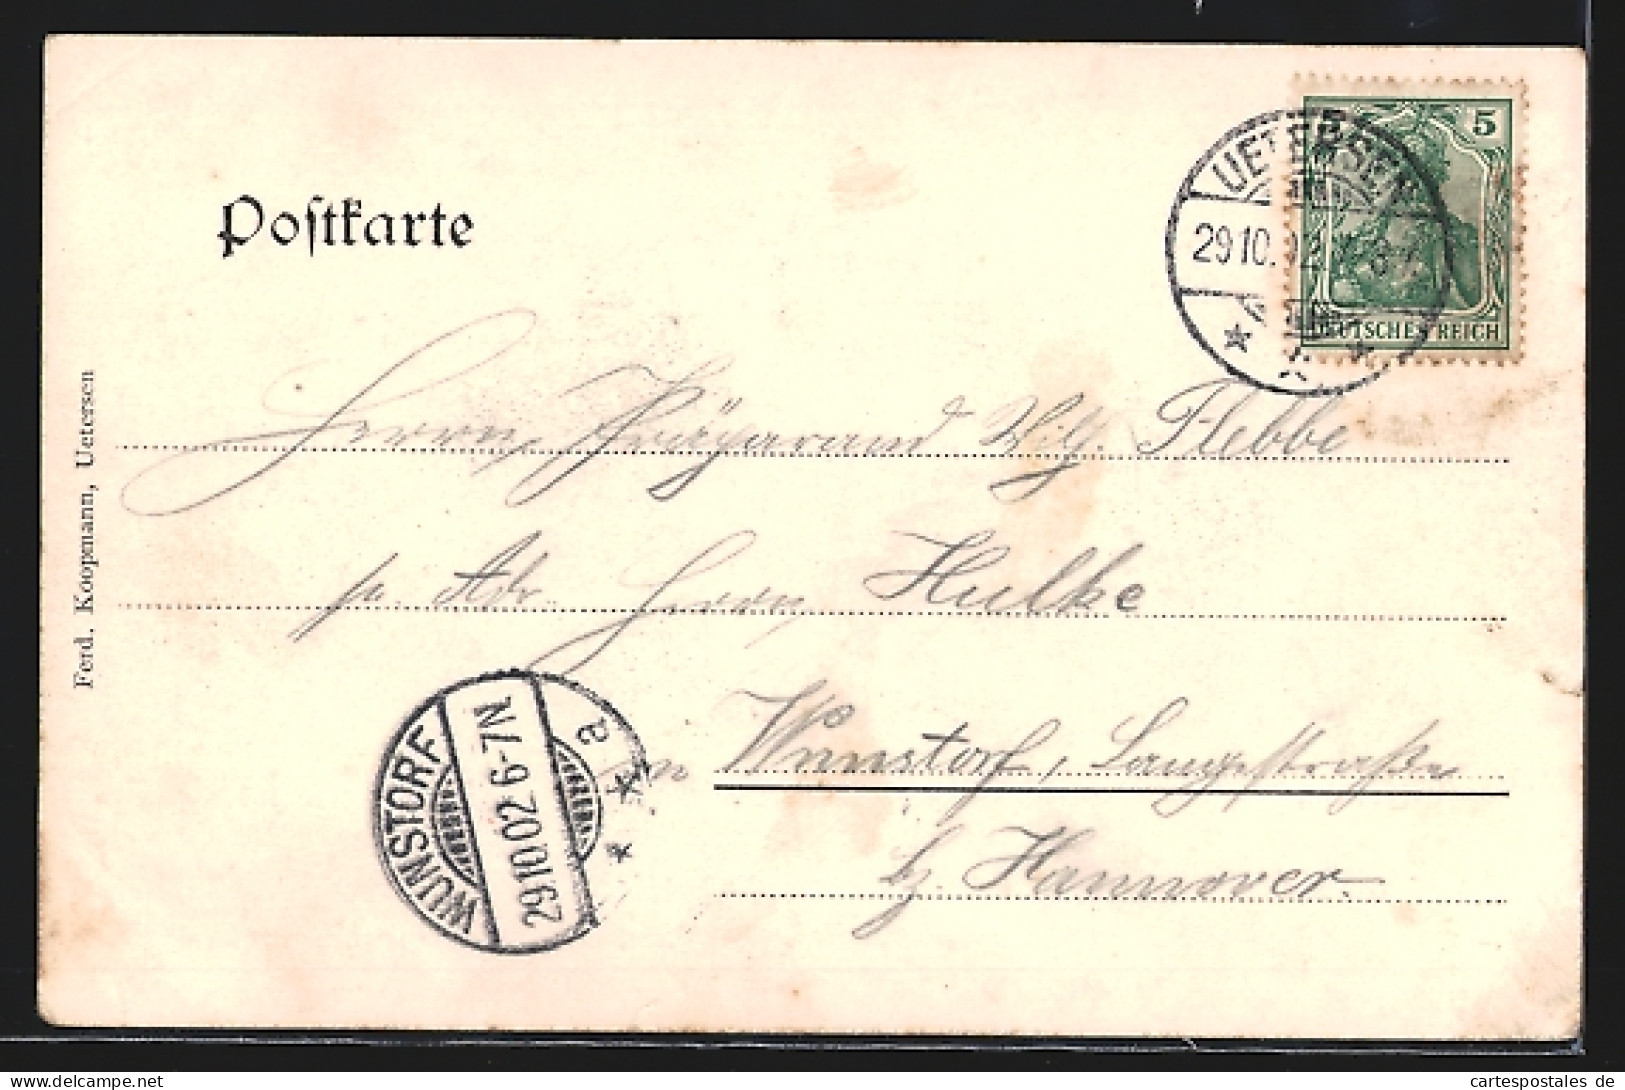 Poſtkarte
5 5
UETERSEN
29 10. 02.
DEUTSCHES REICH
Ferd. Koopmann, Uetersen
Herrn Wilh. Flebbe
p. Adr. Herrn Hulke
WUNSTORF
29.10.02. 6-7N.
a
in Wunstorf, Langestraße
b/ Hannover.
cartespostales.de